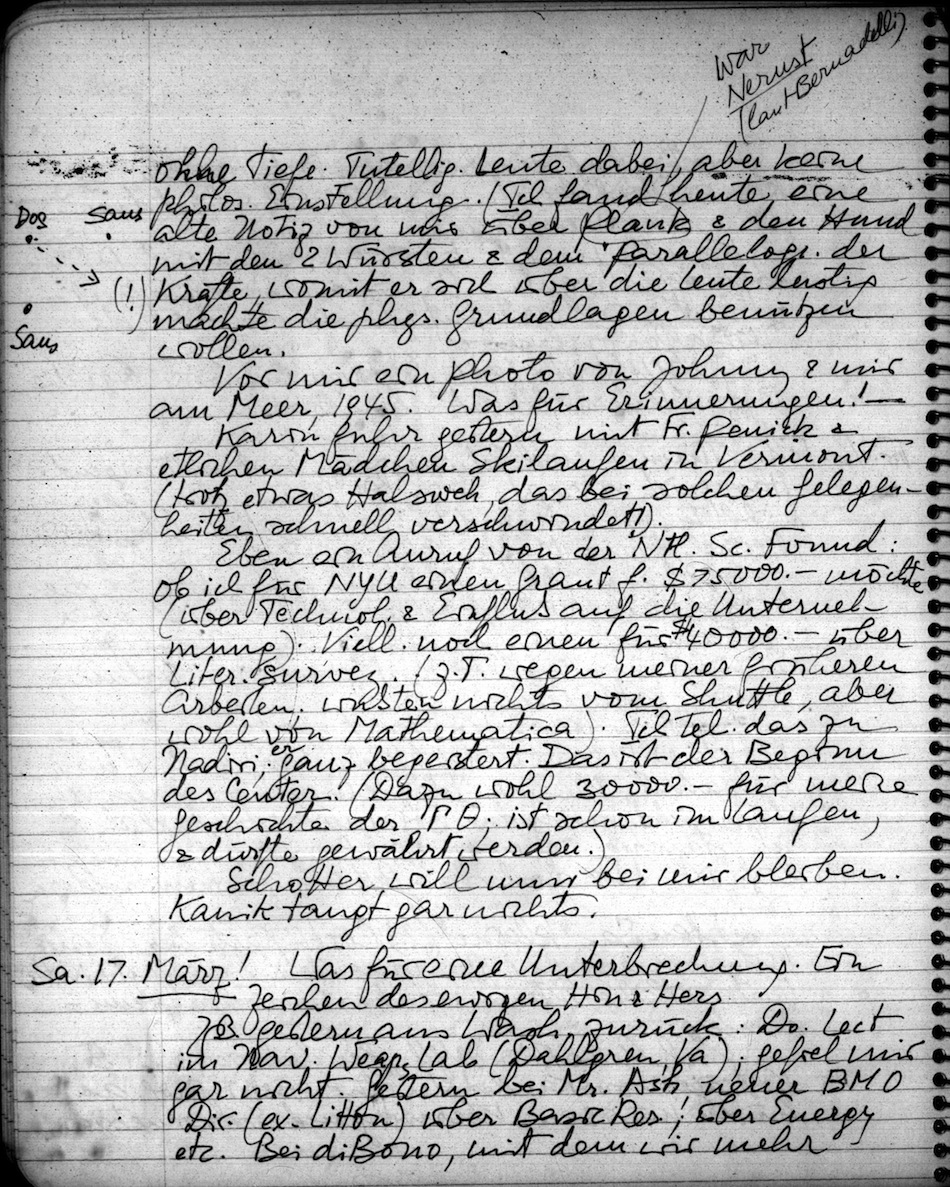 War
Nernst
(laut Bernadelli)
ohne Tiefe. Intellig. Leute dabei, aber keine
philos. Einstellung. (Ich fand heute eine
Dog Saus
alte Notiz von mir über Plank & den Hund
mit den 2 Würsten & dem Parallelogr. der
(!) Kräfte, womit er sich über die Leute lustig
machte die phys. Grundlagen benützen
Saus
wollen.
Vor mir ein Photo von Johnny & mir
am Meer, 1945. Was für Erinnerungen! —
Karin fuhr gestern mit Fr. &
etlichen Mädchen Skilaufen in Vermont.
(trotz etwas Halsweh, das bei solchen Gelegen-
heiten schnell verschwindet!).
Eben ein Anruf von der Ntl. Sc. Found:
ob ich für NYU einen Grant f. $75000.– möchte
(über Technol. & Einfluss auf die Unterneh-
mung). Viell. noch einen für $40000.– über
Liter. Survey. (z.T. wegen meiner früheren
Arbeiten. wussten nichts vom Shuttle, aber
wohl von Mathematica). Ich tel. das zu
Nadiri; er ganz begeistert. Das ist der Beginn
des Center. (Dazu wohl 30000.– für meine
Geschichte der TΘ; ist schon im Laufen,
& dürfte gewährt werden.)
Schotter will nun bei mir bleiben.
Kanik taugt gar nichts.
Sa. 17. März! Was für eine Unterbrechung. Ein
Zeichen des ewigen Hin & Hers
gestern aus Wash. zurück: Do. Lect
im Nav. Weap. Lab (Dahlgren, Va); gefiel mir
gar nicht. Gestern bei Mr. Ash, neuer BMO
Dir. (ex-Litton) über Basic Res; über Energy
etc. Bei diBono, mit dem wir mehr